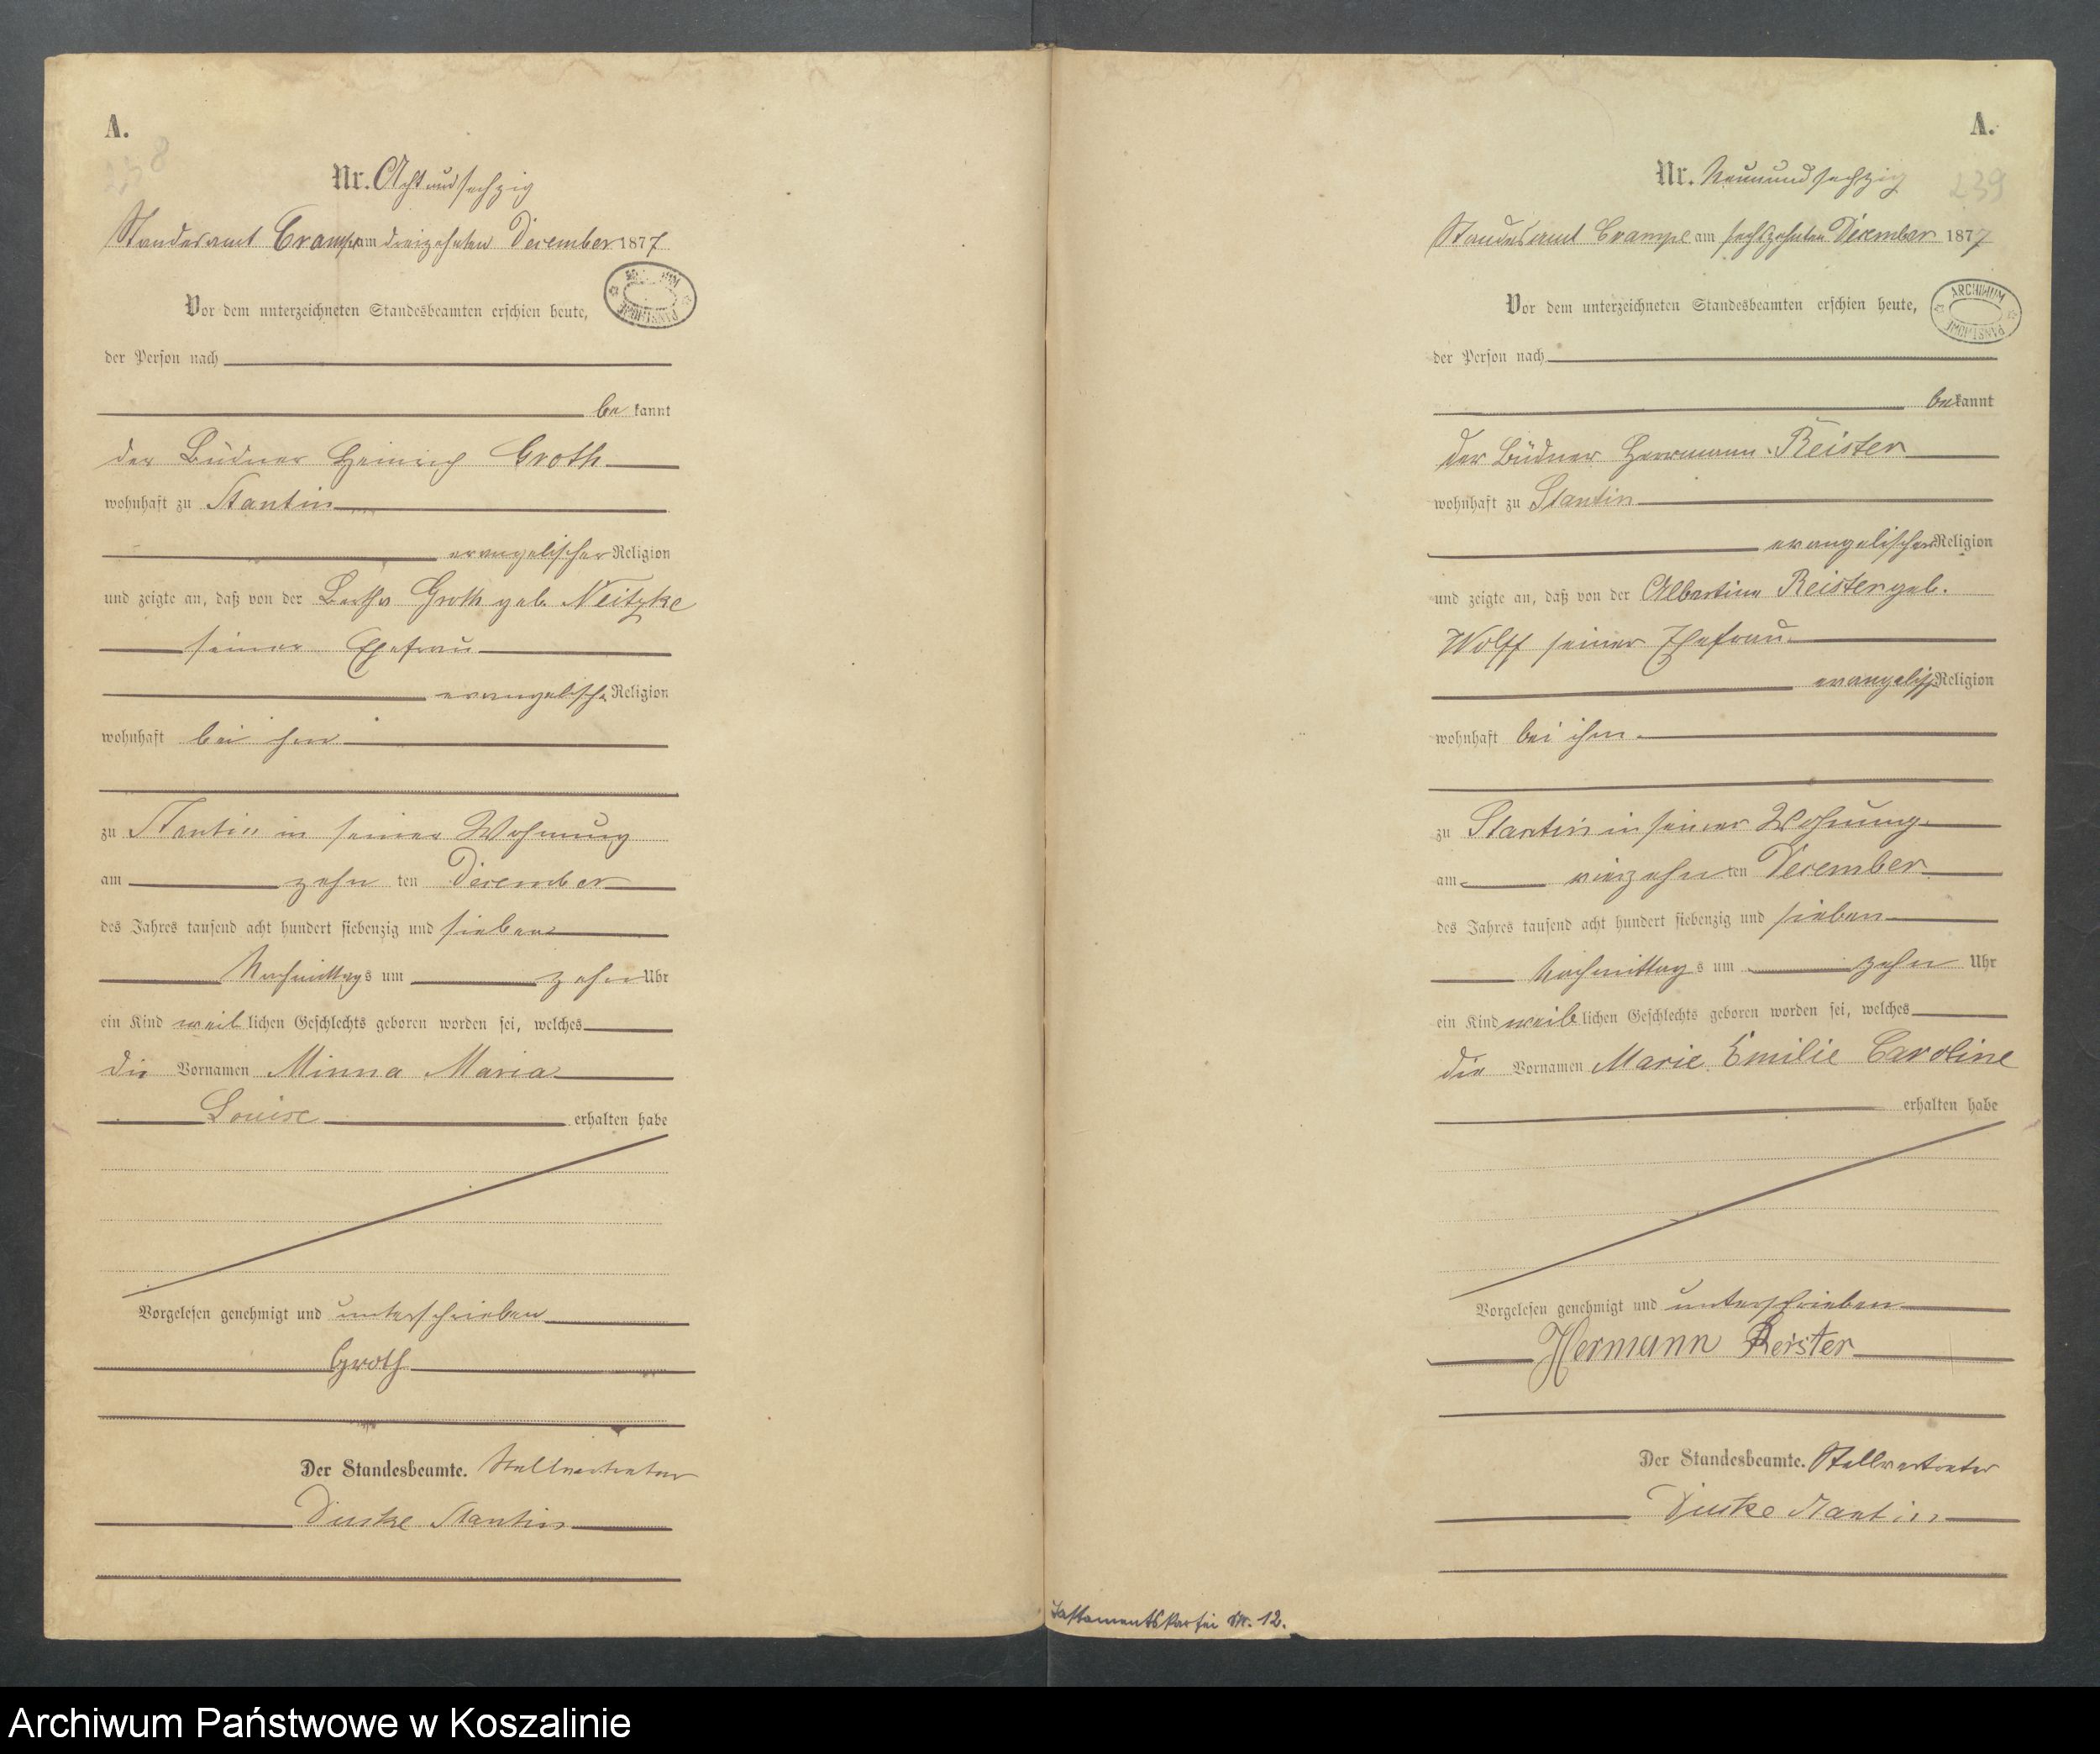 A.
238
Nr. Achtundsechzig
Standesamt Crampe am dreizehnten December 1877
Vor dem unterzeichneten Standesbeamten erschien heute,
der Person nach
be kannt
der Büdner Heinrich Groth
wohnhaft zu Stantin
evangelischer Religion
und zeigte an, daß von der Bertha Groth geb. Neitzke
seiner Ehefrau
evangelischer Religion
wohnhaft bei ihm
zu Stantin in seiner Wohnung
am zehn ten December
des Jahres tausend acht hundert siebenzig und sieben
Nachmittags um zehn Uhr
ein Kind weib lichen Geschlechts geboren worden sei, welches
die Vornamen Minna Maria
Louise erhalten habe
Vorgelesen genehmigt und unterschrieben
Groth
Der Standesbeamte. Stellvertreter
Stantin
A.
239
Nr. Neunundsechzig
Standesamt Crampe am sechszehnten December 1877
ARCHIWUM PAŃSTWOWE
Vor dem unterzeichneten Standesbeamten erschien heute,
der Person nach
bekannt
der Büdner Herrmann Reister
wohnhaft zu Stantin
evangelischer Religion
und zeigte an, daß von der Albertine Reister geb.
Wolff seiner Ehefrau
evangelisch Religion
wohnhaft bei ihm.
zu Stantin in seiner Wohnung
am vierzehn ten December
des Jahres tausend acht hundert siebenzig und sieben
Nachmittag s um zehn Uhr
ein Kind weib lichen Geschlechts geboren worden sei, welches
die Vornamen Marie Emilie Caroline
erhalten habe
Vorgelesen genehmigt und unterschrieben
Hermann Reister
Der Standesbeamte. Stellvertreter
Stantin
Testamentskartei Nr. 12.
Archiwum Państwowe w Koszalinie